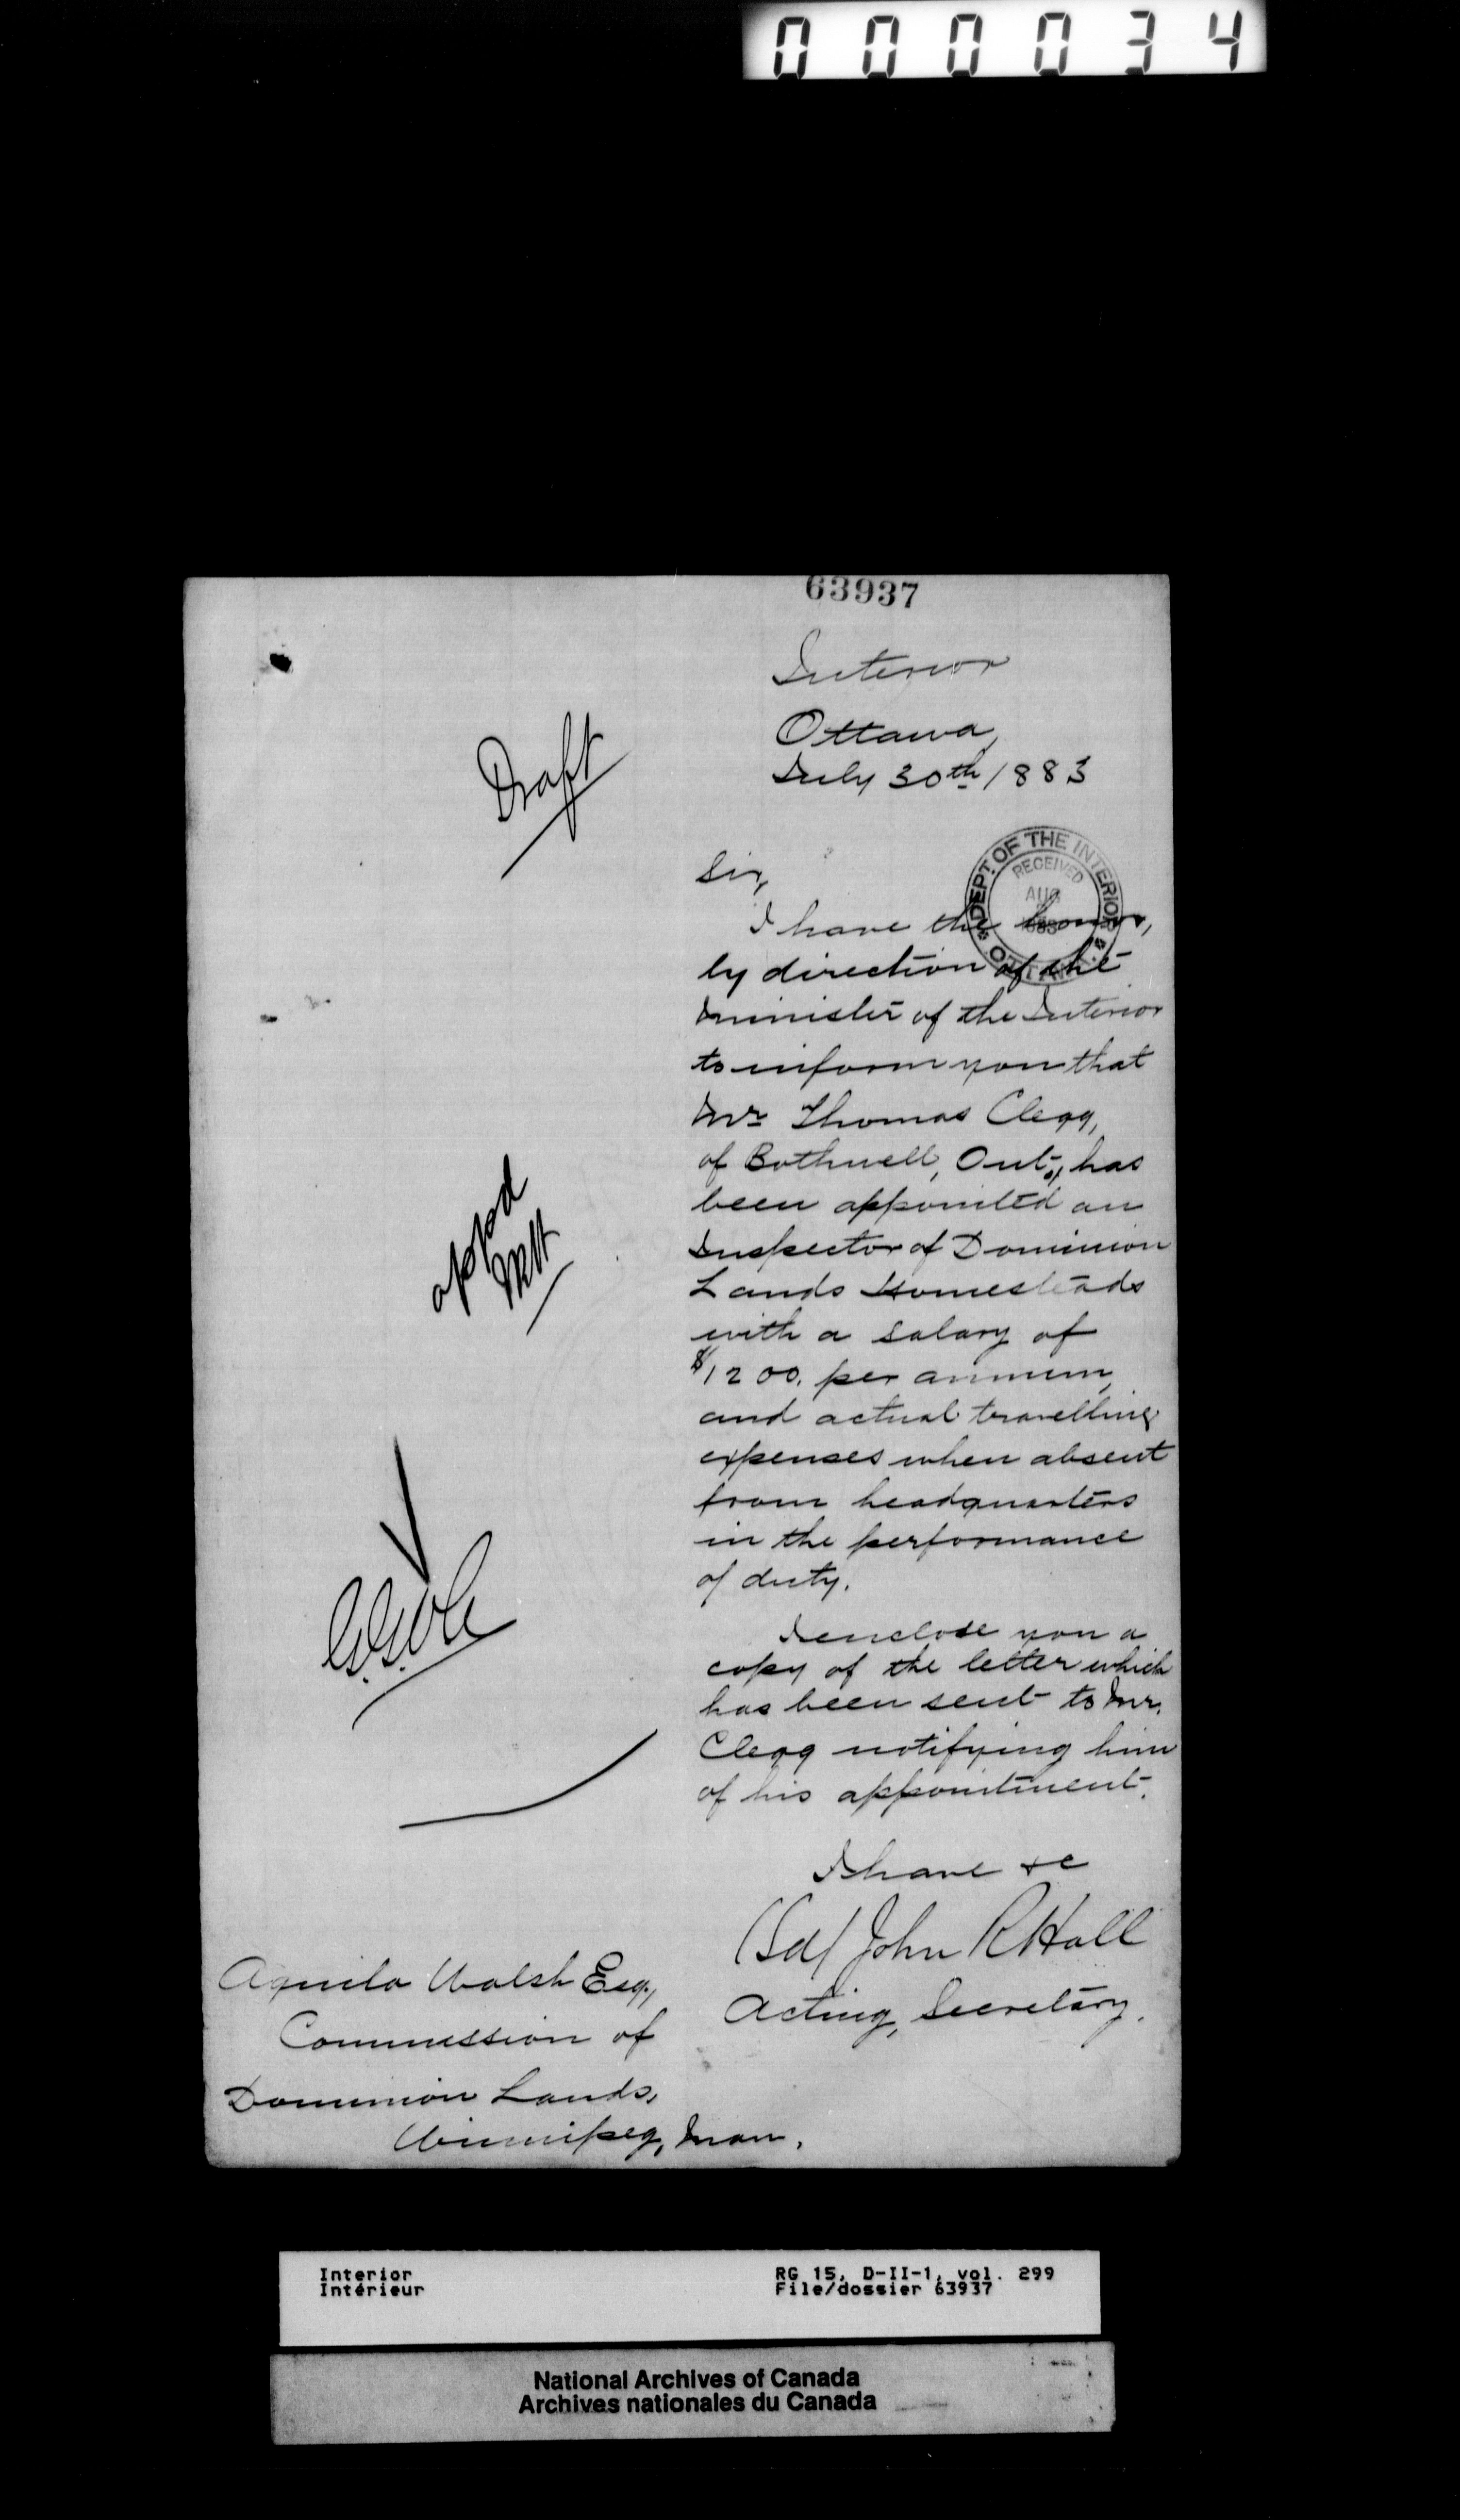 000034
63937
Interior
Ottawa,
July 30th 1883
Draft
DEPT. OF THE INTERIOR
RECEIVED
AUG
1883
OTTAWA
Sir,
I have the honor,
by direction of the
Minister of the Interior
to inform you that
Mr Thomas Clegg,
of Bothwell, Ont., has
been appointed an
Inspector of Dominion
Lands Homesteads
with a salary of
$1200. per annum,
and actual travelling
expenses when absent
from headquarters
in the performance
of duty.
appd
JRH
I enclose you a
copy of the letter which
has been sent to Mr.
Clegg notifying him
of his appointment.
I have &c
(Sd/ John R Hall
Acting, Secretary.
Aquila Walsh Esq.,
Commission of
Dominion Lands,
Winnipeg, Man.
Interior
Intérieur
RG 15, D-II-1, vol. 299
File/dossier 63937
National Archives of Canada
Archives nationales du Canada